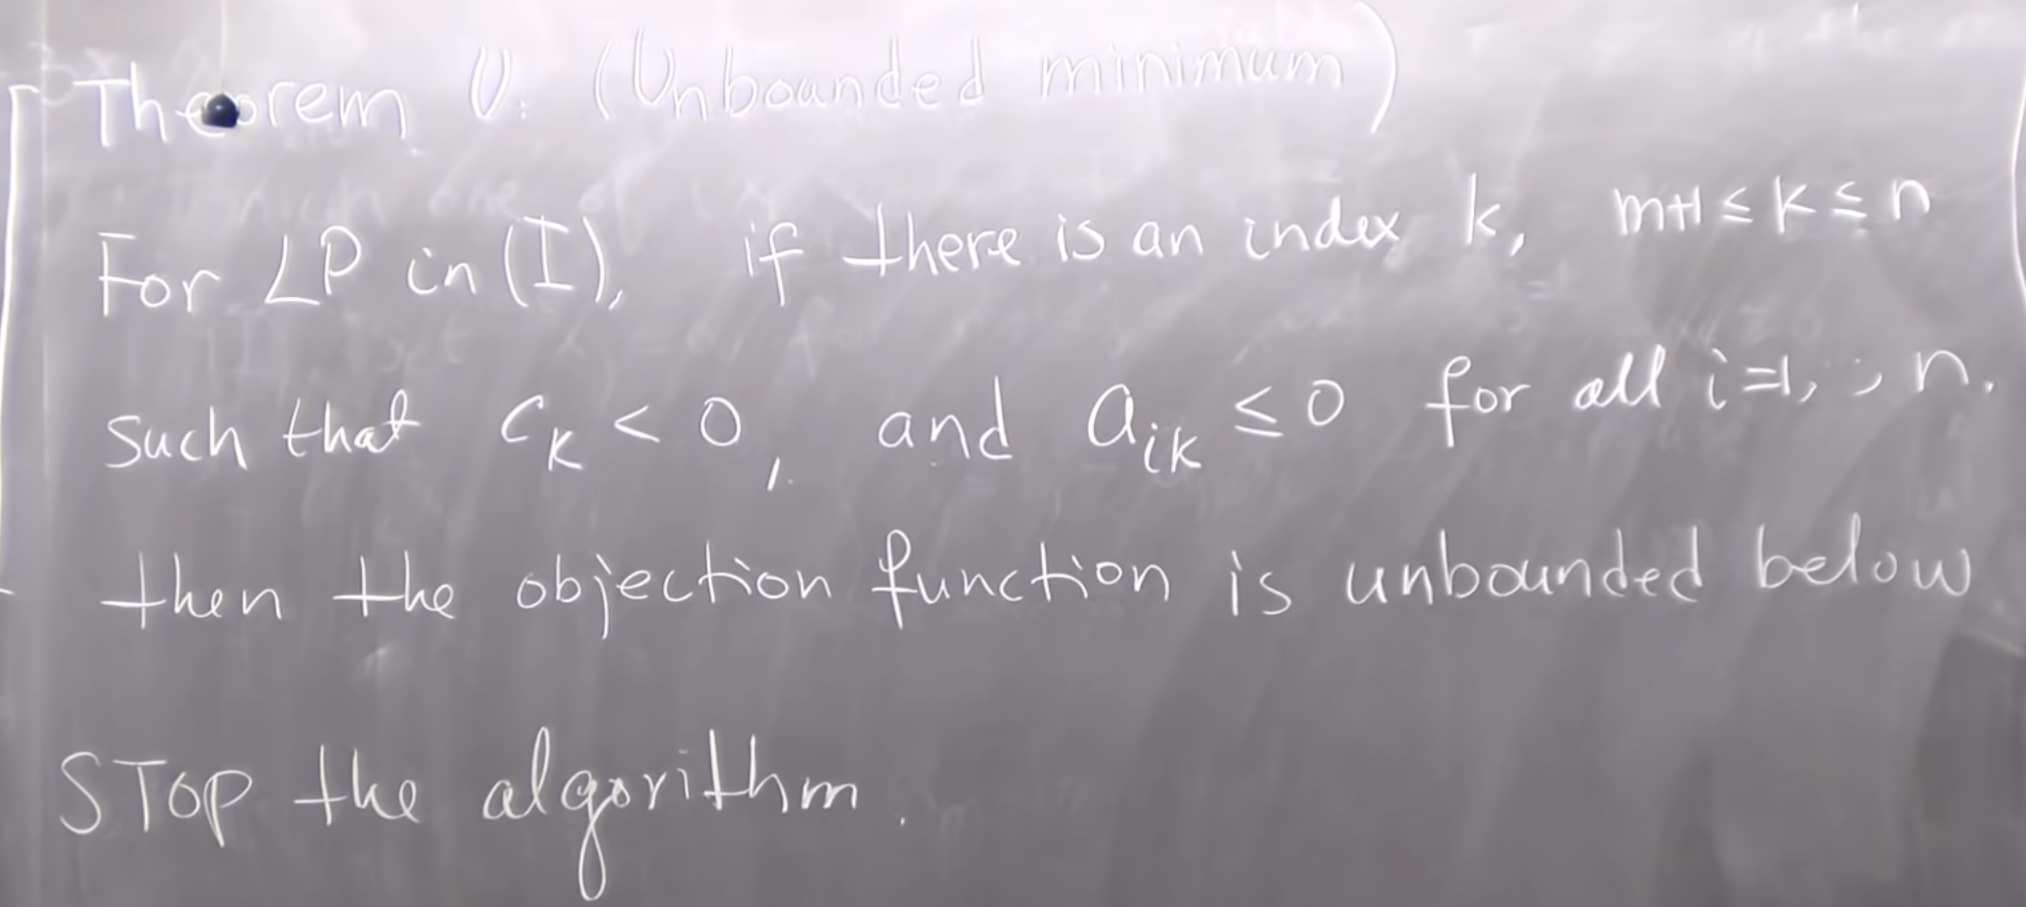 Theorem U: (Unbounded minimum)
For LP in (I), if there is an index k, m+1 ≤ k ≤ n
such that c_k < 0, and a_ik ≤ 0 for all i=1, ., n.
then the objection function is unbounded below
STOP the algorithm.